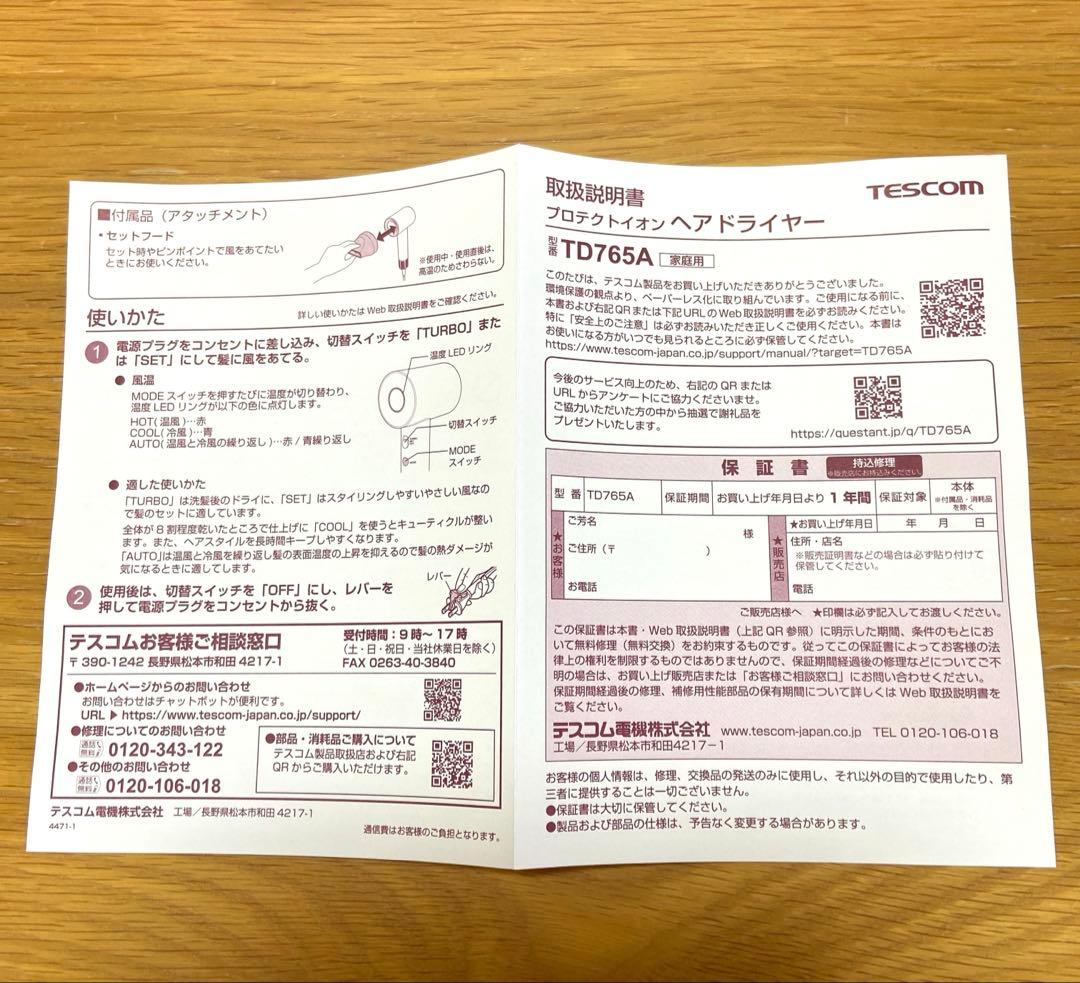 ■付属品（アタッチメント）
• セットフード
セット時やピンポイントで風をあてたい
ときにお使いください。
※使用中・使用直後は、
高温のためさわらない。
使いかた
詳しい使いかたは Web 取扱説明書をご確認ください。
1 電源プラグをコンセントに差し込み、切替スイッチを「TURBO」また
は「SET」にして髪に風をあてる。
● 風温
MODE スイッチを押すたびに温度が切り替わり、
温度 LED リングが以下の色に点灯します。
HOT(温風)…赤
COOL(冷風)…青
AUTO(温風と冷風の繰り返し)…赤 / 青繰り返し
温度 LED リング
切替スイッチ
MODE
スイッチ
● 適した使いかた
「TURBO」は洗髪後のドライに、「SET」はスタイリングしやすいやさしい風なの
で髪のセットに適しています。
全体が 8 割程度乾いたところで仕上げに「COOL」を使うとキューティクルが整い
ます。また、ヘアスタイルを長時間キープしやすくなります。
「AUTO」は温風と冷風を繰り返し髪の表面温度の上昇を抑えるので髪の熱ダメージが
気になるときに適してします。
2 使用後は、切替スイッチを「OFF」にし、レバーを
押して電源プラグをコンセントから抜く。
レバー
テスコムお客様ご相談窓口
〒 390-1242 長野県松本市和田 4217-1
受付時間：9 時〜 17 時
（土・日・祝日・当社休業日を除く）
FAX 0263-40-3840
●ホームページからのお問い合わせ
お問い合わせはチャットボットが便利です。
URL ▶ https://www.tescom-japan.co.jp/support/
●修理についてのお問い合わせ
通話無料 0120-343-122
●その他のお問い合わせ
通話無料 0120-106-018
●部品・消耗品ご購入について
テスコム製品取扱店および右記
QR からご購入いただけます。
テスコム電機株式会社 工場／長野県松本市和田 4217-1
4471-1
通信費はお客様のご負担となります。
取扱説明書
TESCOM
プロテクトイオン ヘアドライヤー
型番 TD765A 家庭用
このたびは、テスコム製品をお買い上げいただきありがとうございました。
環境保護の観点より、ペーパーレス化に取り組んでいます。ご使用になる前に、
本書および右記 QR または下記 URL の Web 取扱説明書を必ずお読みください。
特に「安全上のご注意」は必ずお読みいただき正しくご使用ください。本書は
お使いになる方がいつでも見られるところに必ず保管してください。
https://www.tescom-japan.co.jp/support/manual/?target=TD765A
今後のサービス向上のため、右記の QR または
URL からアンケートにご協力くださいませ。
ご協力いただいた方の中から抽選で謝礼品を
プレゼントいたします。
https://questant.jp/q/TD765A
保 証 書
持込修理
※販売店にお持込みください。
型 番 TD765A 保証期間 お買い上げ年月日より 1 年間 保証対象 本体
※付属品・消耗品
を除く
★お客様
ご芳名
様
ご住所（〒 ）
お電話
★販売店
★お買い上げ年月日 年 月 日
住所・店名
※販売証明書などの場合は必ず貼り付けて
保管してください。
電話
ご販売店様へ ★印欄は必ず記入してお渡しください。
この保証書は本書・Web 取扱説明書（上記 QR 参照）に明示した期間、条件のもとにお
いて無料修理（無料交換）をお約束するものです。従ってこの保証書によってお客様の法
律上の権利を制限するものではありませんので、保証期間経過後の修理などについてご不
明の場合は、お買い上げ販売店または「お客様ご相談窓口」にお問い合わせください。
保証期間経過後の修理、補修用性能部品の保有期間について詳しくは Web 取扱説明書を
ご覧ください。
テスコム電機株式会社 www.tescom-japan.co.jp TEL 0120-106-018
工場／長野県松本市和田4217−1
お客様の個人情報は、修理、交換品の発送のみに使用し、それ以外の目的で使用したり、第
三者に提供することは一切ございません。
●保証書は大切に保管してください。
●製品および部品の仕様は、予告なく変更する場合があります。